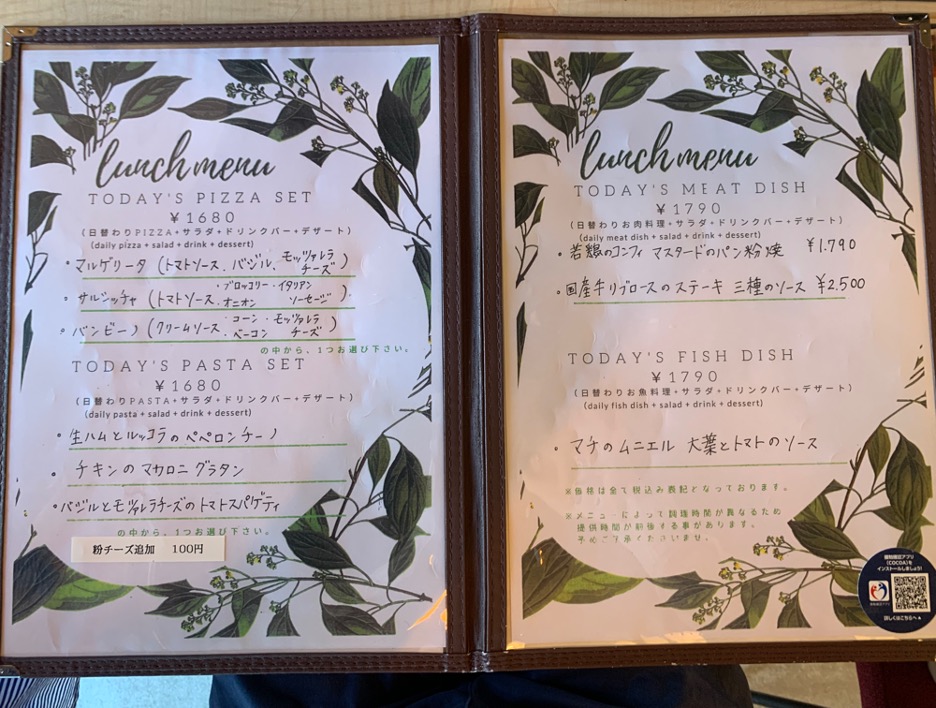 lunch menu
TODAY'S PIZZA SET
¥1680
(日替わりPIZZA+サラダ+ドリンクバー+デザート)
(daily pizza + salad + drink + dessert)
・マルゲリータ (トマトソース、バジル、モッツァレラチーズ)
・サルシッチャ (トマトソース・ブロッコリー・オニオン・イタリアンソーセージ)
・バンビーノ (クリームソース・コーン・ベーコン・モッツァレラチーズ)
の中から、1つお選び下さい。
TODAY'S PASTA SET
¥1680
(日替わりPASTA+サラダ+ドリンクバー+デザート)
(daily pasta + salad + drink + dessert)
・生ハムとルッコラのペペロンチーノ
・チキンのマカロニグラタン
・バジルとモッツァレラチーズのトマトスパゲティ
の中から、1つお選び下さい。
粉チーズ追加 100円
lunch menu
TODAY'S MEAT DISH
¥1790
(日替わりお肉料理+サラダ+ドリンクバー+デザート)
(daily meat dish + salad + drink + dessert)
・若鶏のコンフィ マスタードのパン粉焼 ¥1.790
・国産牛リブロースのステーキ 三種のソース ¥2,500
TODAY'S FISH DISH
¥1790
(日替わりお魚料理+サラダ+ドリンクバー+デザート)
(daily fish dish + salad + drink + dessert)
・マチのムニエル 大葉とトマトのソース
※価格は全て税込み表記となっております。
※メニューによって調理時間が異なるため
提供時間が前後する事があります。
予めご了承くださいませ。
接触確認アプリ
(COCOA)を
インストールしましょう!
詳しくはこちらへ▲